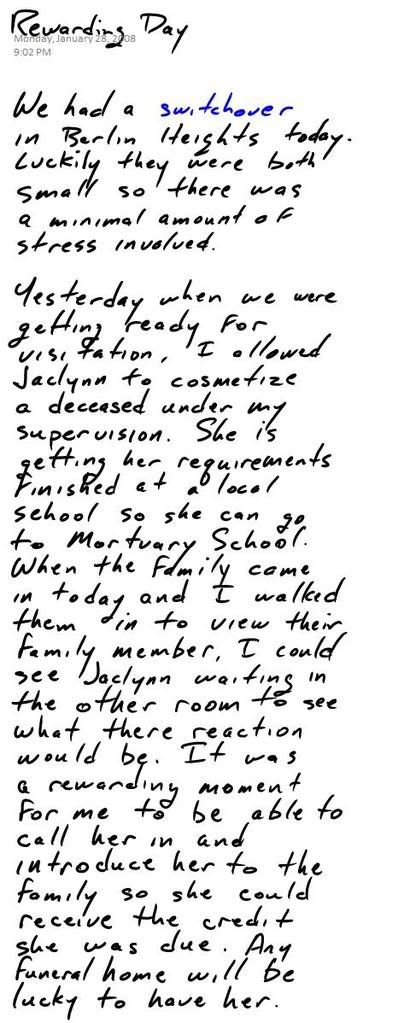 Rewarding Day
Monday, January 28, 2008
9:02 PM
We had a switchover
in Berlin Heights today.
Luckily they were both
small so there was
a minimal amount of
stress involved.
Yesterday when we were
getting ready for
visitation, I allowed
Jaclynn to cosmetize
a deceased under my
supervision. She is
getting her requirements
finished at a local
school so she can go
to Mortuary School.
When the family came
in today and I walked
them in to view their
family member, I could
see Jaclynn waiting in
the other room to see
what there reaction
would be. It was
a rewarding moment
for me to be able to
call her in and
introduce her to the
family so she could
receive the credit
she was due. Any
funeral home will be
lucky to have her.